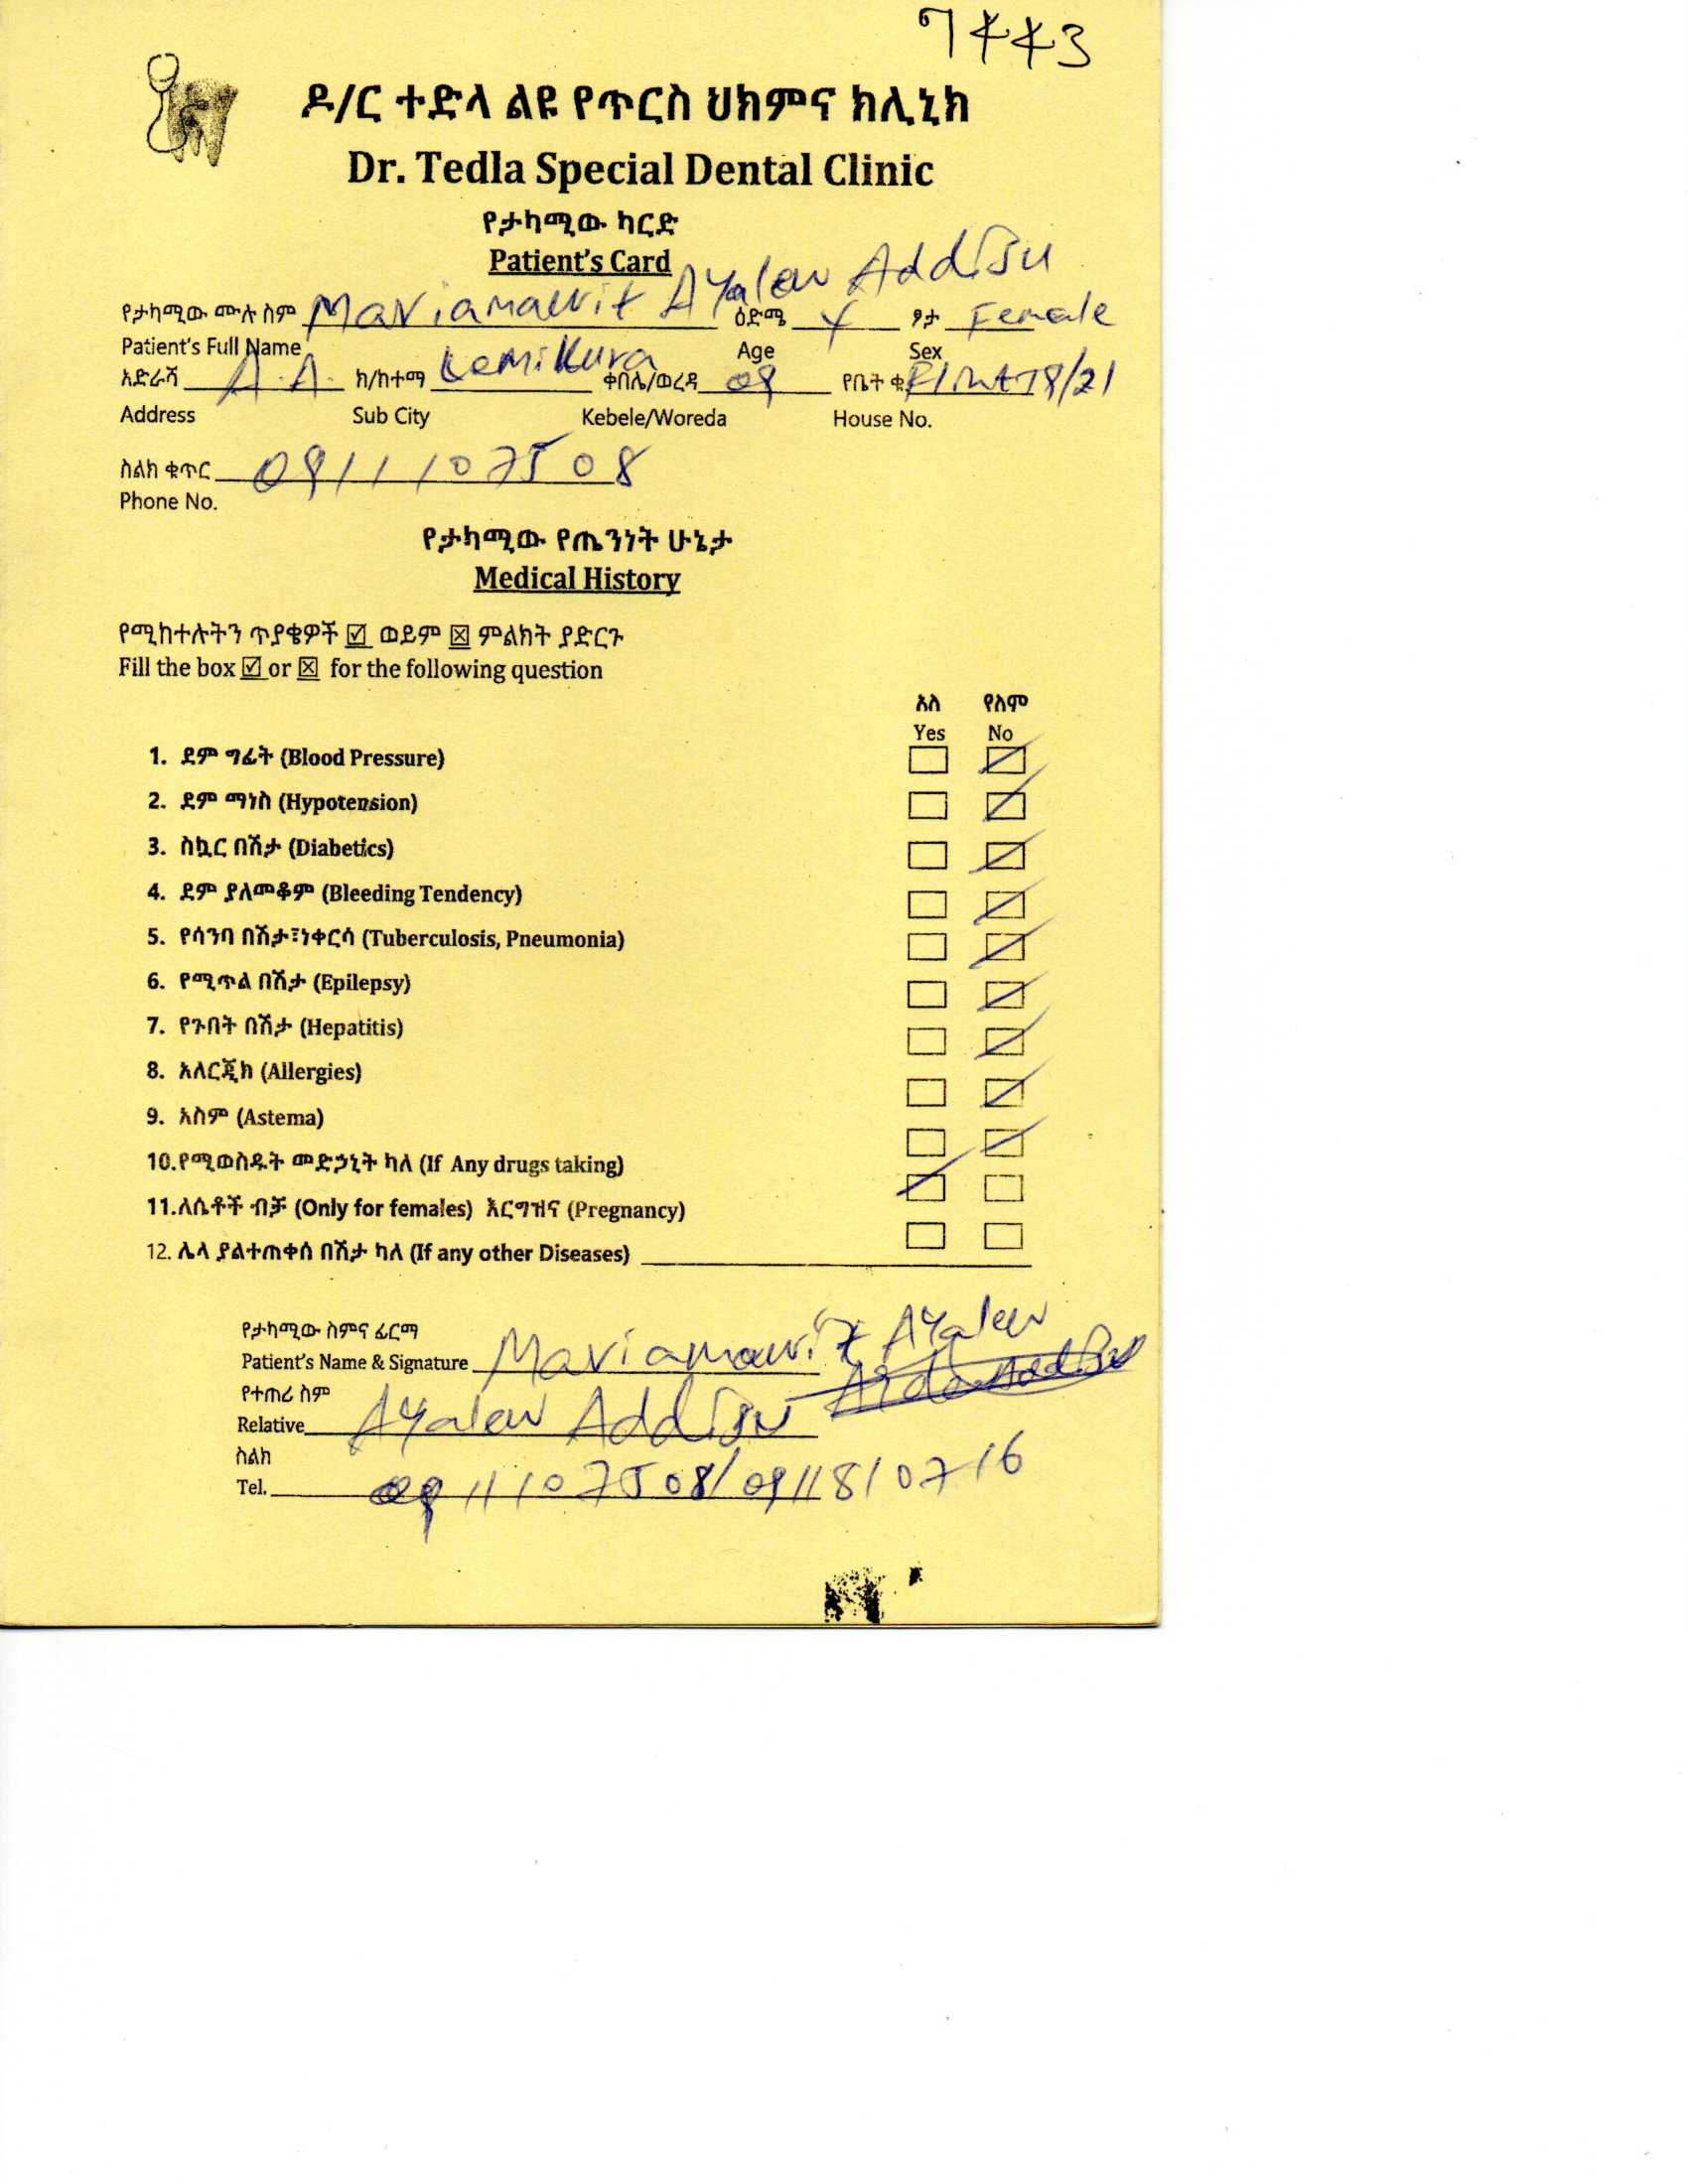 7443
ዶ/ር ተድላ ልዩ የጥርስ ህክምና ክሊኒክ
Dr. Tedla Special Dental Clinic
የታካሚው ካርድ
Patient's Card
የታካሚው ሙሉ ስም Mariamawit Ayalew Addisu ዕድሜ 4 ፆታ Female
Patient's Full Name Age Sex
አድራሻ A.A. ክ/ከተማ Lemi Kura ቀበሌ/ወረዳ 09 የቤት ቁ
Address Sub City Kebele/Woreda House No.
ስልክ ቁጥር 0911107508
Phone No.
የታካሚው የጤንነት ሁኔታ
Medical History
የሚከተሉትን ጥያቄዎች ☑ ወይም ☒ ምልክት ያድርጉ
Fill the box ☑ or ☒ for the following question
አለ የለም
Yes No
1. ደም ግፊት (Blood Pressure)
2. ደም ማነስ (Hypotension)
3. ስኳር በሽታ (Diabetics)
4. ደም ያለመቆም (Bleeding Tendency)
5. የሳንባ በሽታ፣ነቀርሳ (Tuberculosis, Pneumonia)
6. የሚጥል በሽታ (Epilepsy)
7. የጉበት በሽታ (Hepatitis)
8. አለርጂክ (Allergies)
9. አስም (Astema)
10.የሚወስዱት መድኃኒት ካለ (If Any drugs taking)
11.ለሴቶች ብቻ (Only for females) እርግዝና (Pregnancy)
12. ሌላ ያልተጠቀሰ በሽታ ካለ (If any other Diseases)
የታካሚው ስምና ፊርማ
Patient's Name & Signature Mariamawit Ayalew
የተጠሪ ስም
Relative Ayalew Addisu
ስልክ
Tel. 0911107508/0911810716